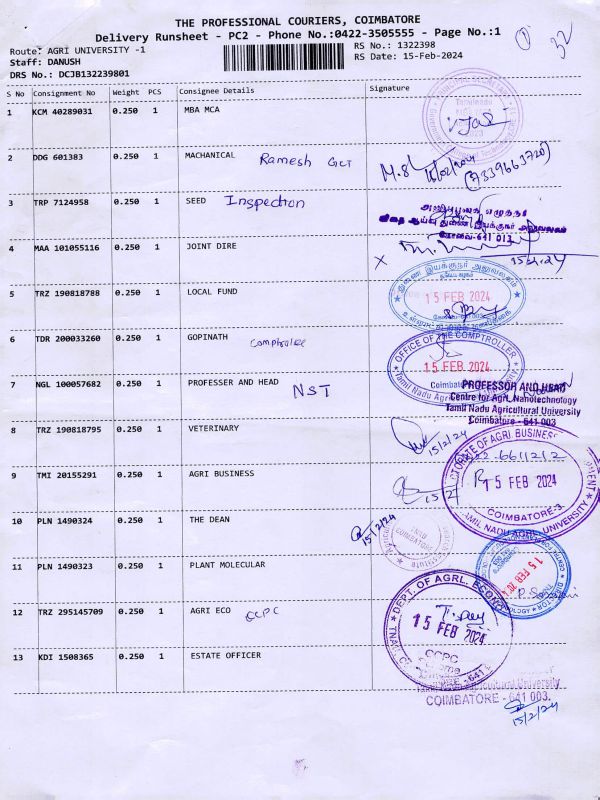 THE PROFESSIONAL COURIERS, COIMBATORE
Delivery Runsheet - PC2 - Phone No.:0422-3505555 - Page No.:1
Route: AGRI UNIVERSITY -1
RS No.: 1322398
Staff: DANUSH
RS Date: 15-Feb-2024
DRS No.: DCJB132239801
1
32
S No Consignment No Weight PCS Consignee Details Signature
1 KCM 40289031 0.250 1 MBA MCA
2 DDG 601383 0.250 1 MACHANICAL Ramesh GCT
M.S (7339663720)
3 TRP 7124958 0.250 1 SEED Inspection
கோவை-641 013
4 MAA 101055116 0.250 1 JOINT DIRE
5 TRZ 190818788 0.250 1 LOCAL FUND
15 FEB 2024
6 TDR 200033260 0.250 1 GOPINATH
OFFICE OF THE COMPTROLLER
15 FEB 2024
7 NGL 100057682 0.250 1 PROFESSER AND HEAD NST
PROFESSOR AND HEAD
Centre for Agrl. Nanotechnology
Tamil Nadu Agricultural University
Coimbatore - 641 003
8 TRZ 190818795 0.250 1 VETERINARY
15/2/24
9 TMI 20155291 0.250 1 AGRI BUSINESS
15 FEB 2024
COIMBATORE-3.
10 PLN 1490324 0.250 1 THE DEAN
15/2/24
11 PLN 1490323 0.250 1 PLANT MOLECULAR
15 FEB 2024
12 TRZ 295145709 0.250 1 AGRI ECO CCPC
DEPT. OF AGRL. ECONO
15 FEB 2024
13 KDI 1508365 0.250 1 ESTATE OFFICER
Tamil Nadu Agricultural University
COIMBATORE - 641 003.
15/2/24